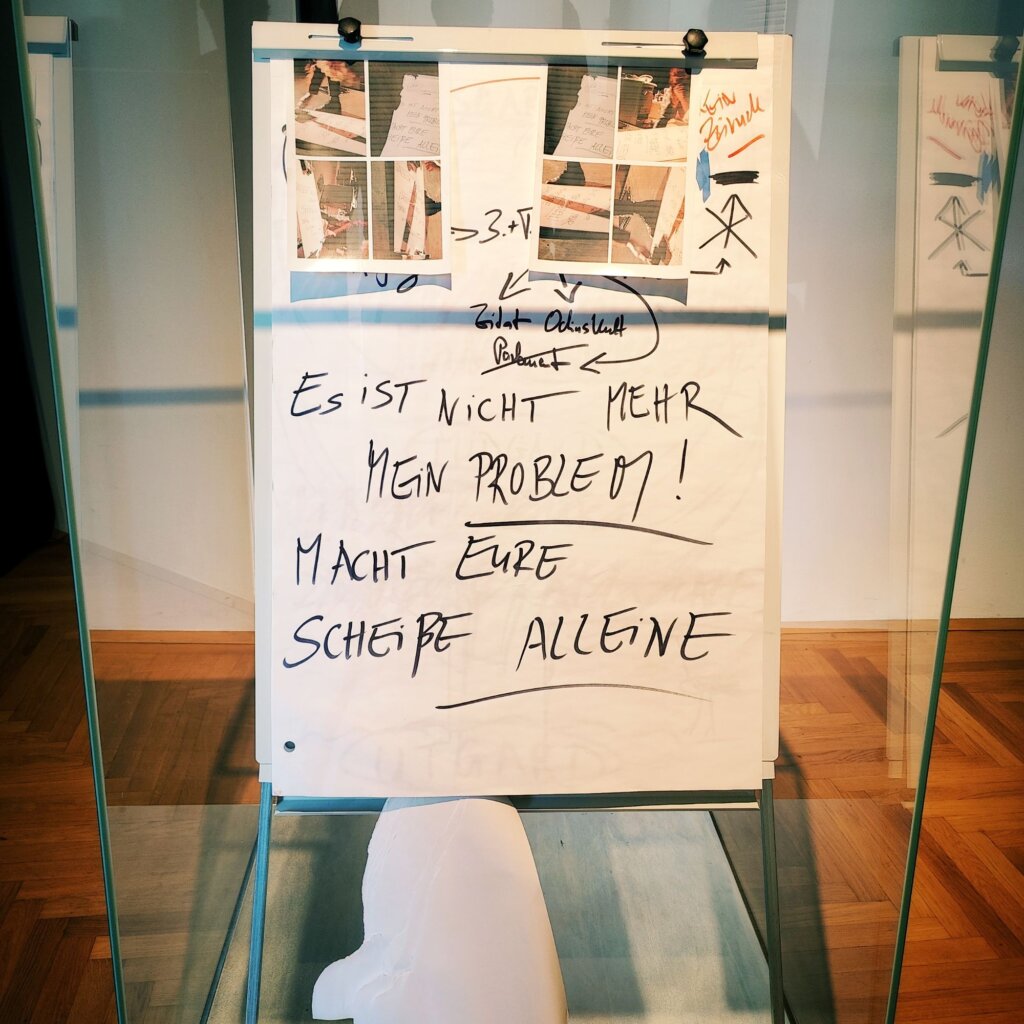 => 3. + V.
Zidat Odinskult
Parlament
Es iST NiCHT MEHR
MEiN PROBLEM!
MACHT EURE
SCHEißE ALLEiNE